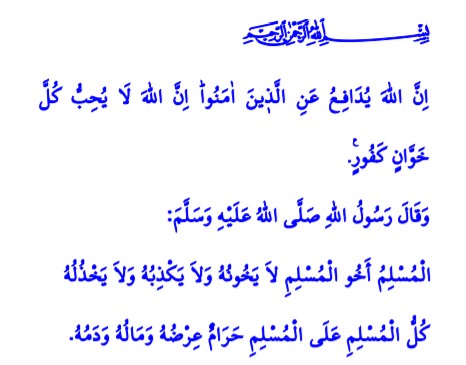 بِسْمِ اللهِ الرَّحْمٰنِ الرَّحِيمِ
اِنَّ اللهَ يُدَافِعُ عَنِ الَّذ۪ينَ اٰمَنُواۜ اِنَّ اللهَ لَا يُحِبُّ كُلَّ
خَوَّانٍ كَفُورٍ۟.
وَقَالَ رَسُولُ اللهِ صَلَّى اللهُ عَلَيْهِ وَسَلَّمَ:
الْمُسْلِمُ أَخُو الْمُسْلِمِ لاَ يَخُونُهُ وَلاَ يَكْذِبُهُ وَلاَ يَخْذُلُهُ
كُلُّ الْمُسْلِمِ عَلَى الْمُسْلِمِ حَرَامٌ عِرْضُهُ وَمَالُهُ وَدَمُهُ.